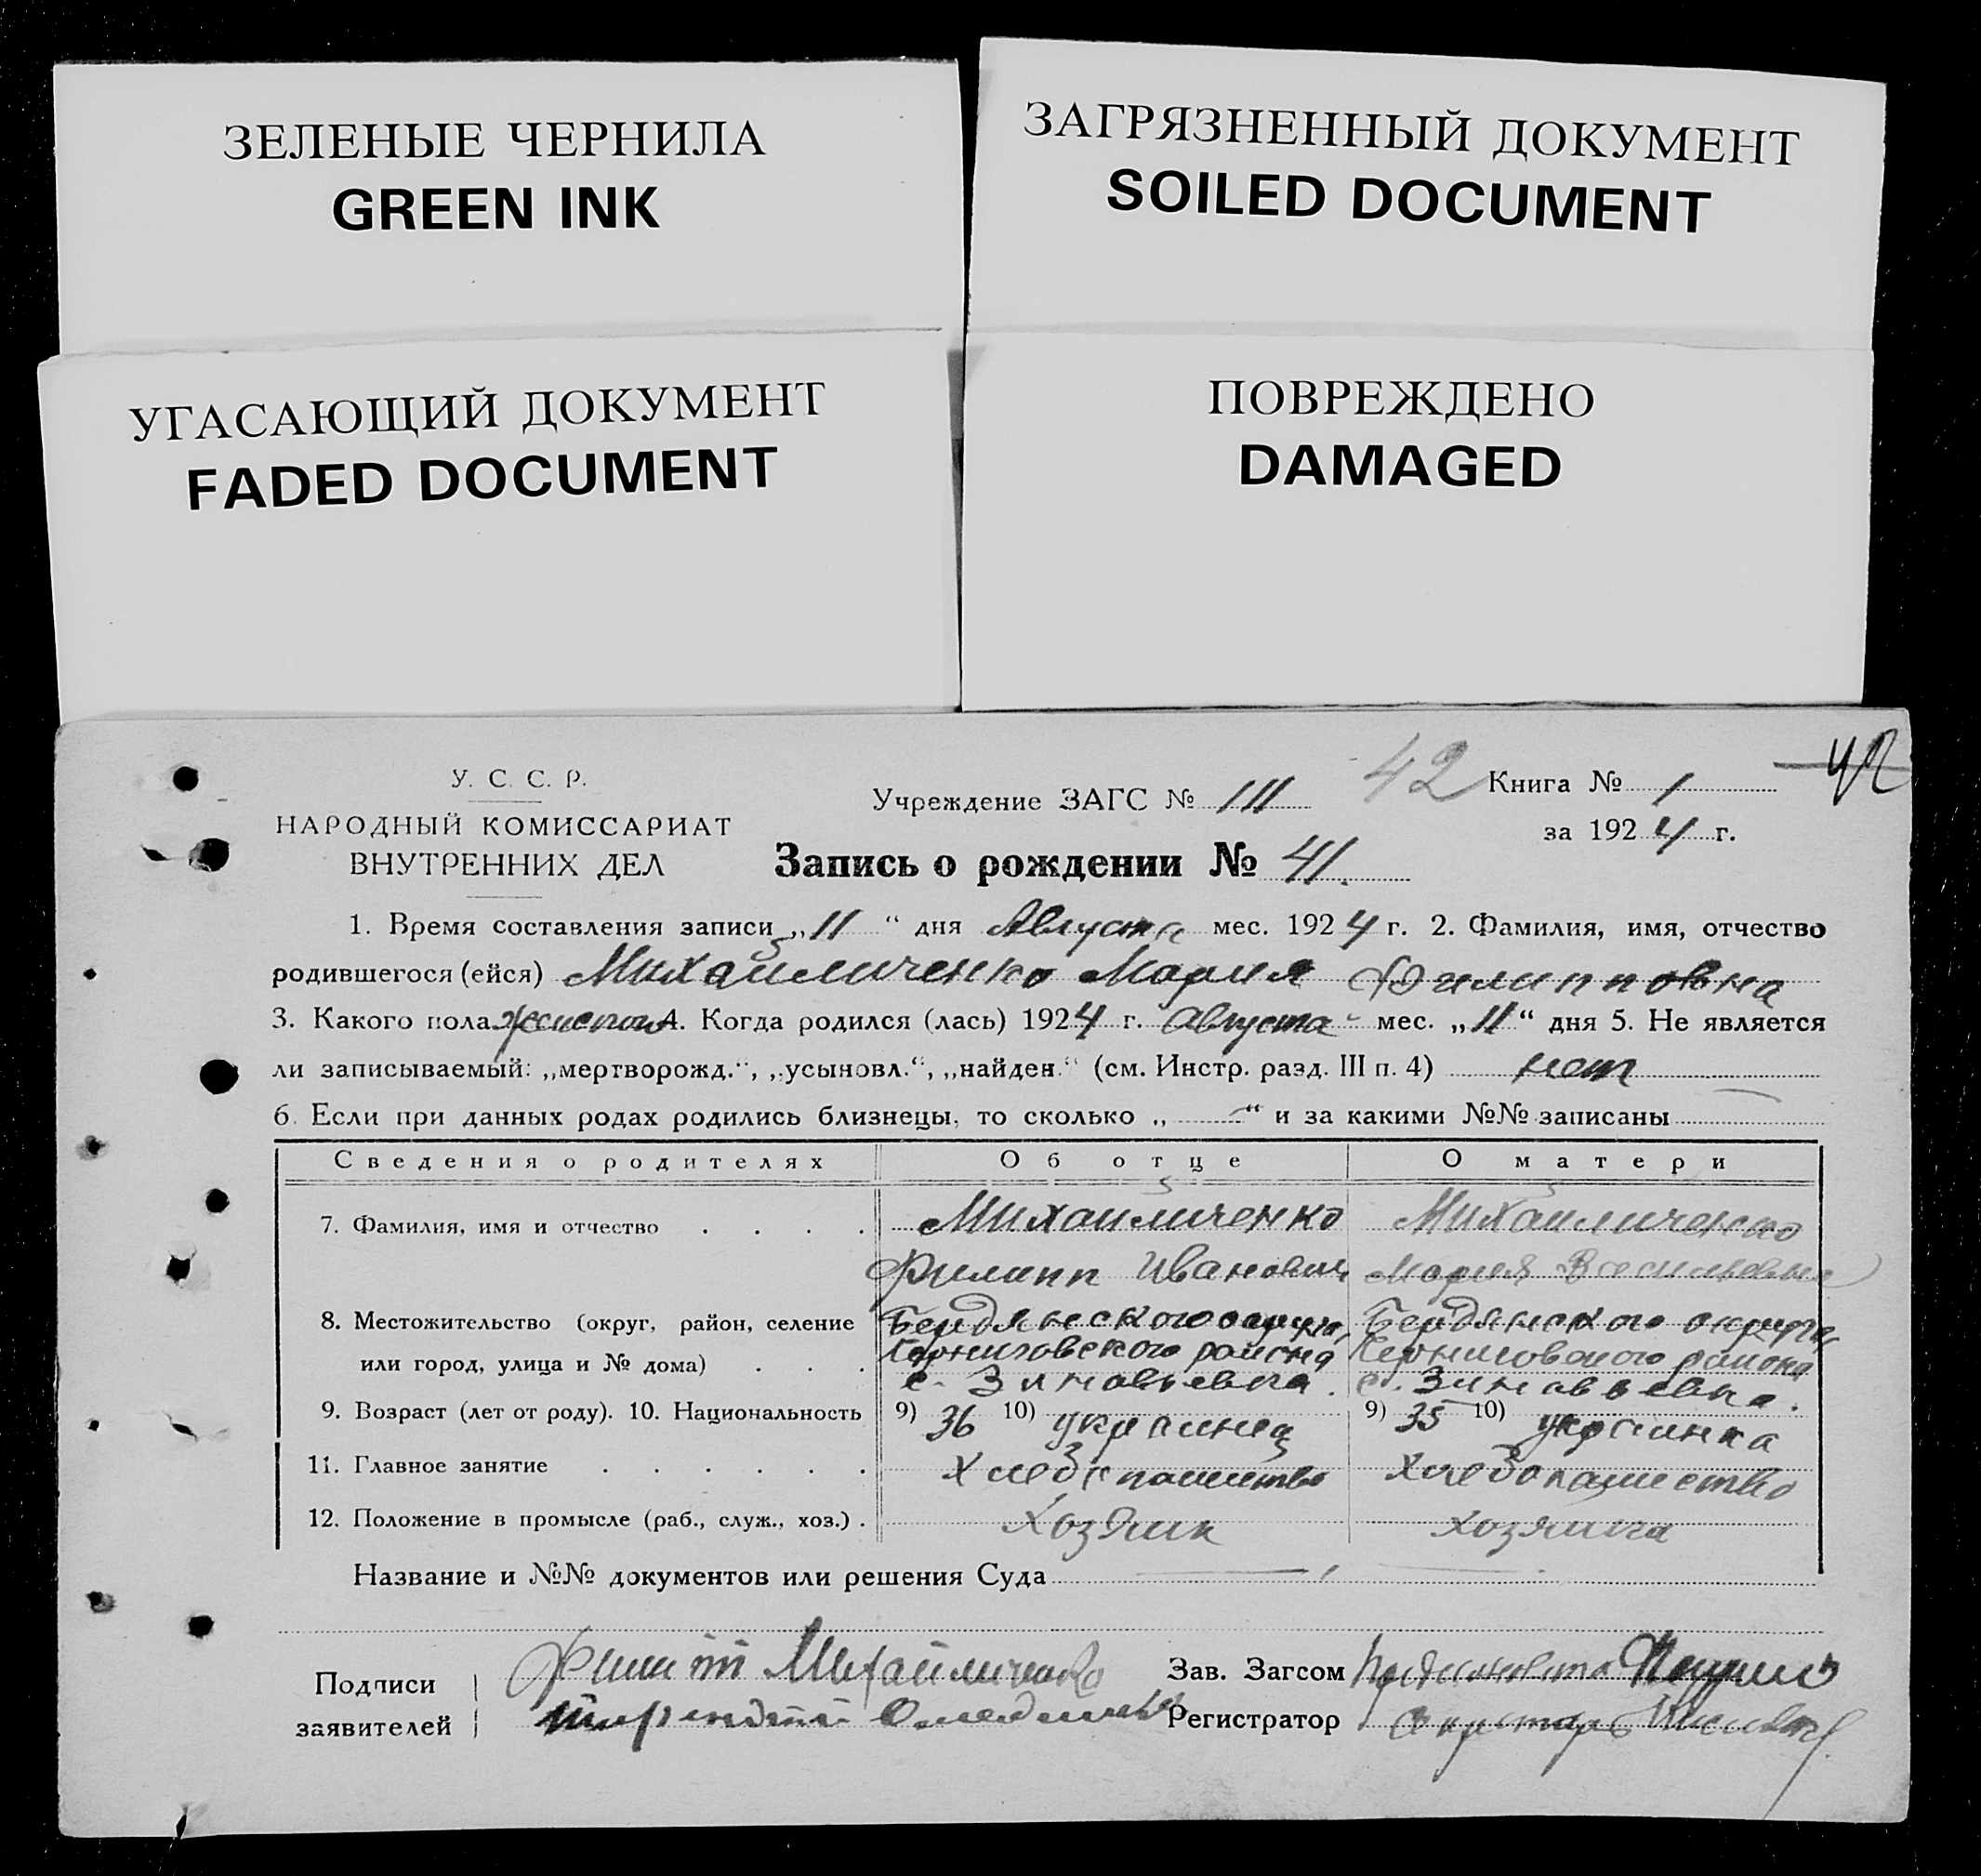 ЗЕЛЕНЫЕ ЧЕРНИЛА
GREEN INK
ЗАГРЯЗНЕННЫЙ ДОКУМЕНТ
SOILED DOCUMENT
УГАСАЮЩИЙ ДОКУМЕНТ
FADED DOCUMENT
ПОВРЕЖДЕНО
DAMAGED
У. С. С. Р.
НАРОДНЫЙ КОМИССАРИАТ
ВНУТРЕННИХ ДЕЛ
Учреждение ЗАГС № 111
42
Книга № 1
42
за 1924 г.
Запись о рождении № 41.
1. Время составления записи „11“ дня Августа мес. 1924 г. 2. Фамилия, имя, отчество
родившегося (ейся) Михайличенко Мария Филипповна
3. Какого пола 4. Когда родился (лась) 1924 г. Августа мес. „11“ дня 5. Не является
ли записываемый: „мертворожд.“, „усыновл.“, „найден.“ (см. Инстр. разд. III п. 4) нет
6. Если при данных родах родились близнецы, то сколько „—“ и за какими №№ записаны
Сведения о родителях Об отце О матери
7. Фамилия, имя и отчество . . . . Михайличенко Михайличенко
Филипп Иванович Мария Васильевна
8. Местожительство (округ, район, селение Бердянского округа, Бердянского округа,
или город, улица и № дома) . . . Черниговского района Черниговского района
с. Зиновьевка. с. Зиновьевка.
9. Возраст (лет от роду). 10. Национальность 9) 36 10) украинец 9) 35 10) украинка
11. Главное занятие . . . . . . Хлебопашество Хлебопашество
12. Положение в промысле (раб., служ., хоз.) . Хозяин хозяйка
Название и №№ документов или решения Суда
Подписи
заявителей
Филипп Михайличенко
Зав. Загсом
Регистратор Секретарь